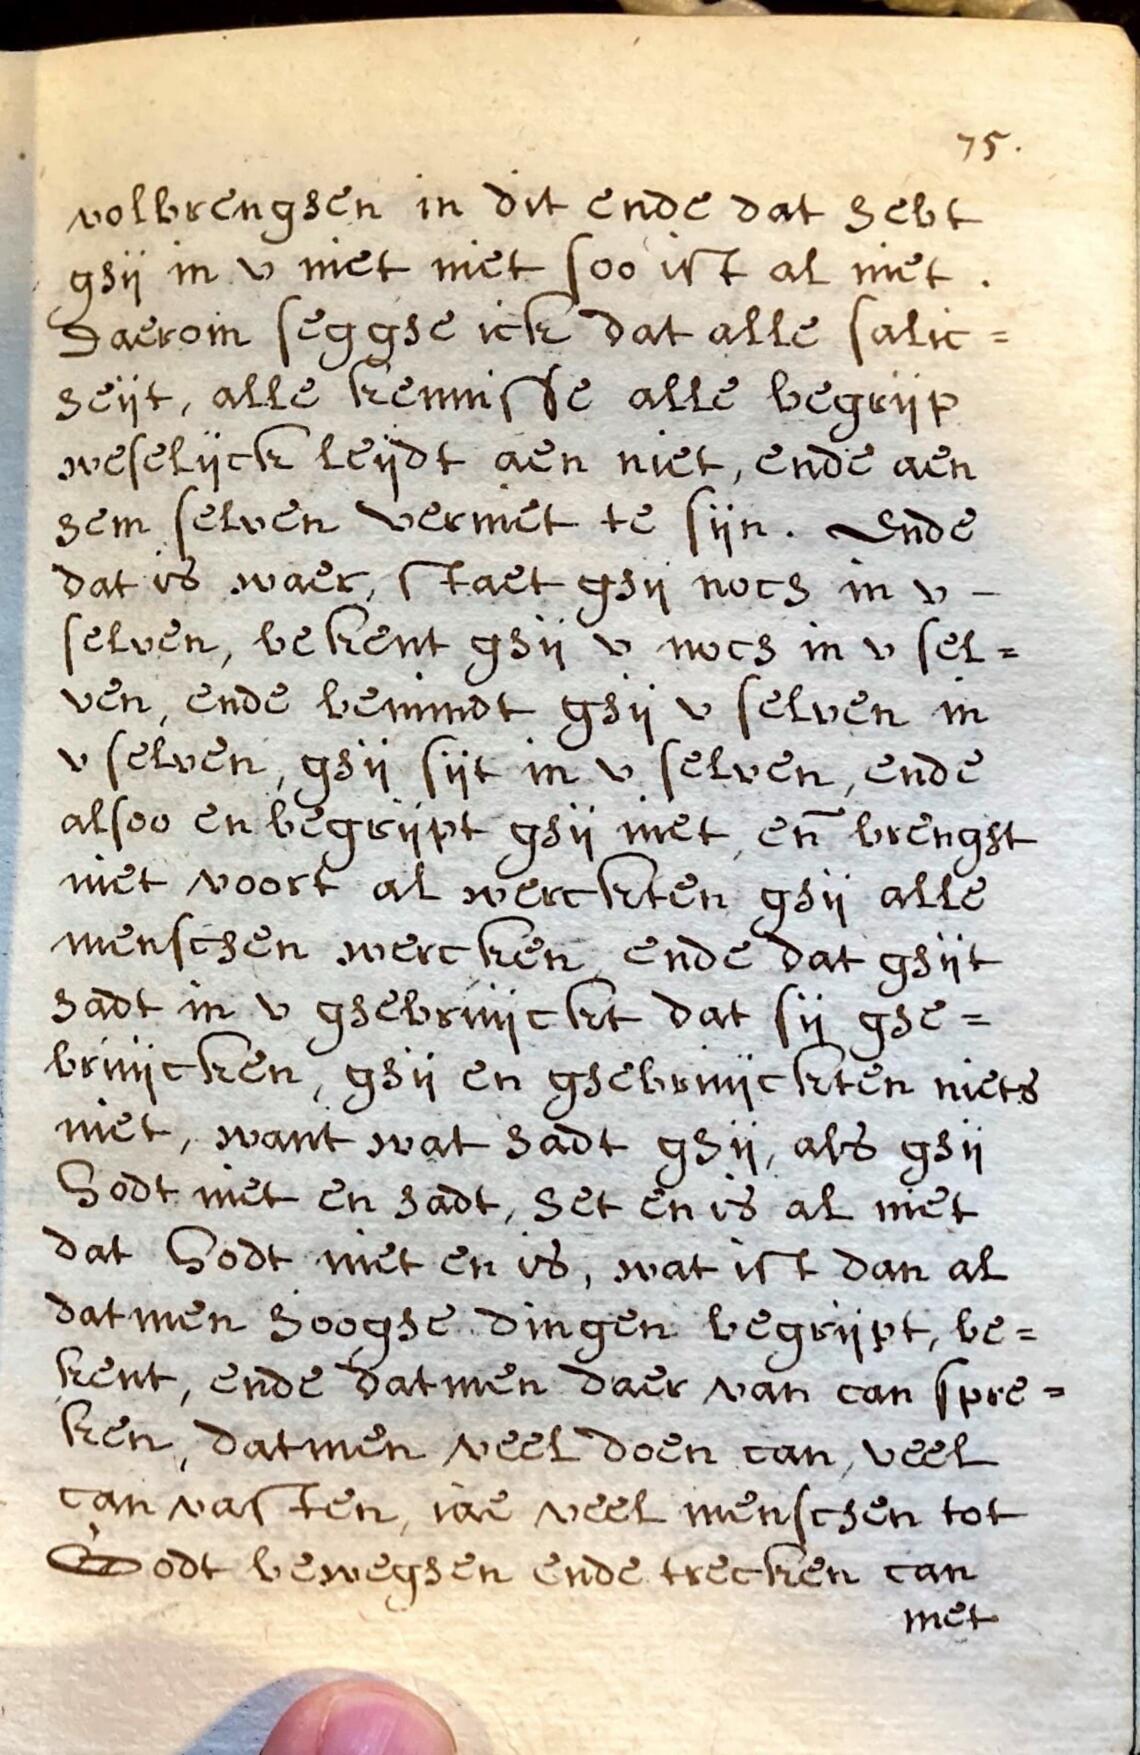 75.
volbrenghen in dit ende dat hebt
ghij in v niet niet soo ist al niet .
Daerom segghe ick dat alle salic=
heijt, alle kennisse alle begrijp
weselijck leijdt aen niet, ende aen
hem selven verniet te sijn. Ende
dat is waer, staet ghij noch in v –
selven, bekent ghij v noch in v sel=
ven, ende bemindt ghij v selven in
v selven, ghij sijt in v selven, ende
alsoo en begrijpt ghij niet, en̄ brenght
niet voort al werckten ghij alle
menschen wercken, ende dat ghijt
hadt in v ghebruijckt dat sij ghe=
bruijcken, ghij en ghebruijckten niets
niet, want wat hadt ghij, als ghij
Godt niet en hadt, het en is al niet
dat Godt niet en is, wat ist dan al
datmen hooghe dingen begrijpt, be=
kent, ende datmen daer van can spre=
ken, datmen veel doen can, veel
can vasten, iae veel menschen tot
Godt beweghen ende trecken can
met